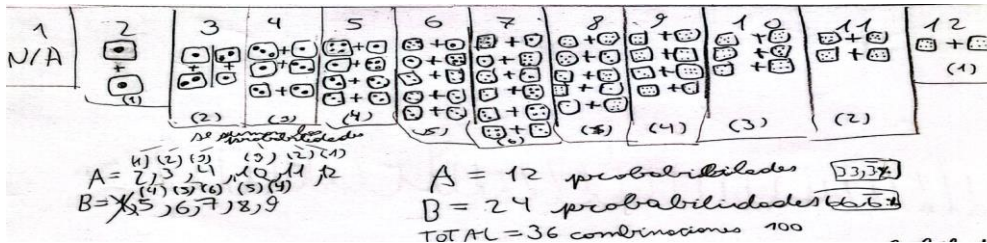 1 2 3 4 5 6 7 8 9 10 11 12
N/A
(1) (2) (3) (4) (5) (6) (5) (4) (3) (2) (1)
se probabilidades
(1) (2) (3) (3) (2) (1)
A = 2, 3, 4, 10, 11, 12
(4) (5) (6) (5) (4)
B = 5, 6, 7, 8, 9
A = 12 probabilidades 33,3%
B = 24 probabilidades
TOTAL = 36 combinaciones 100